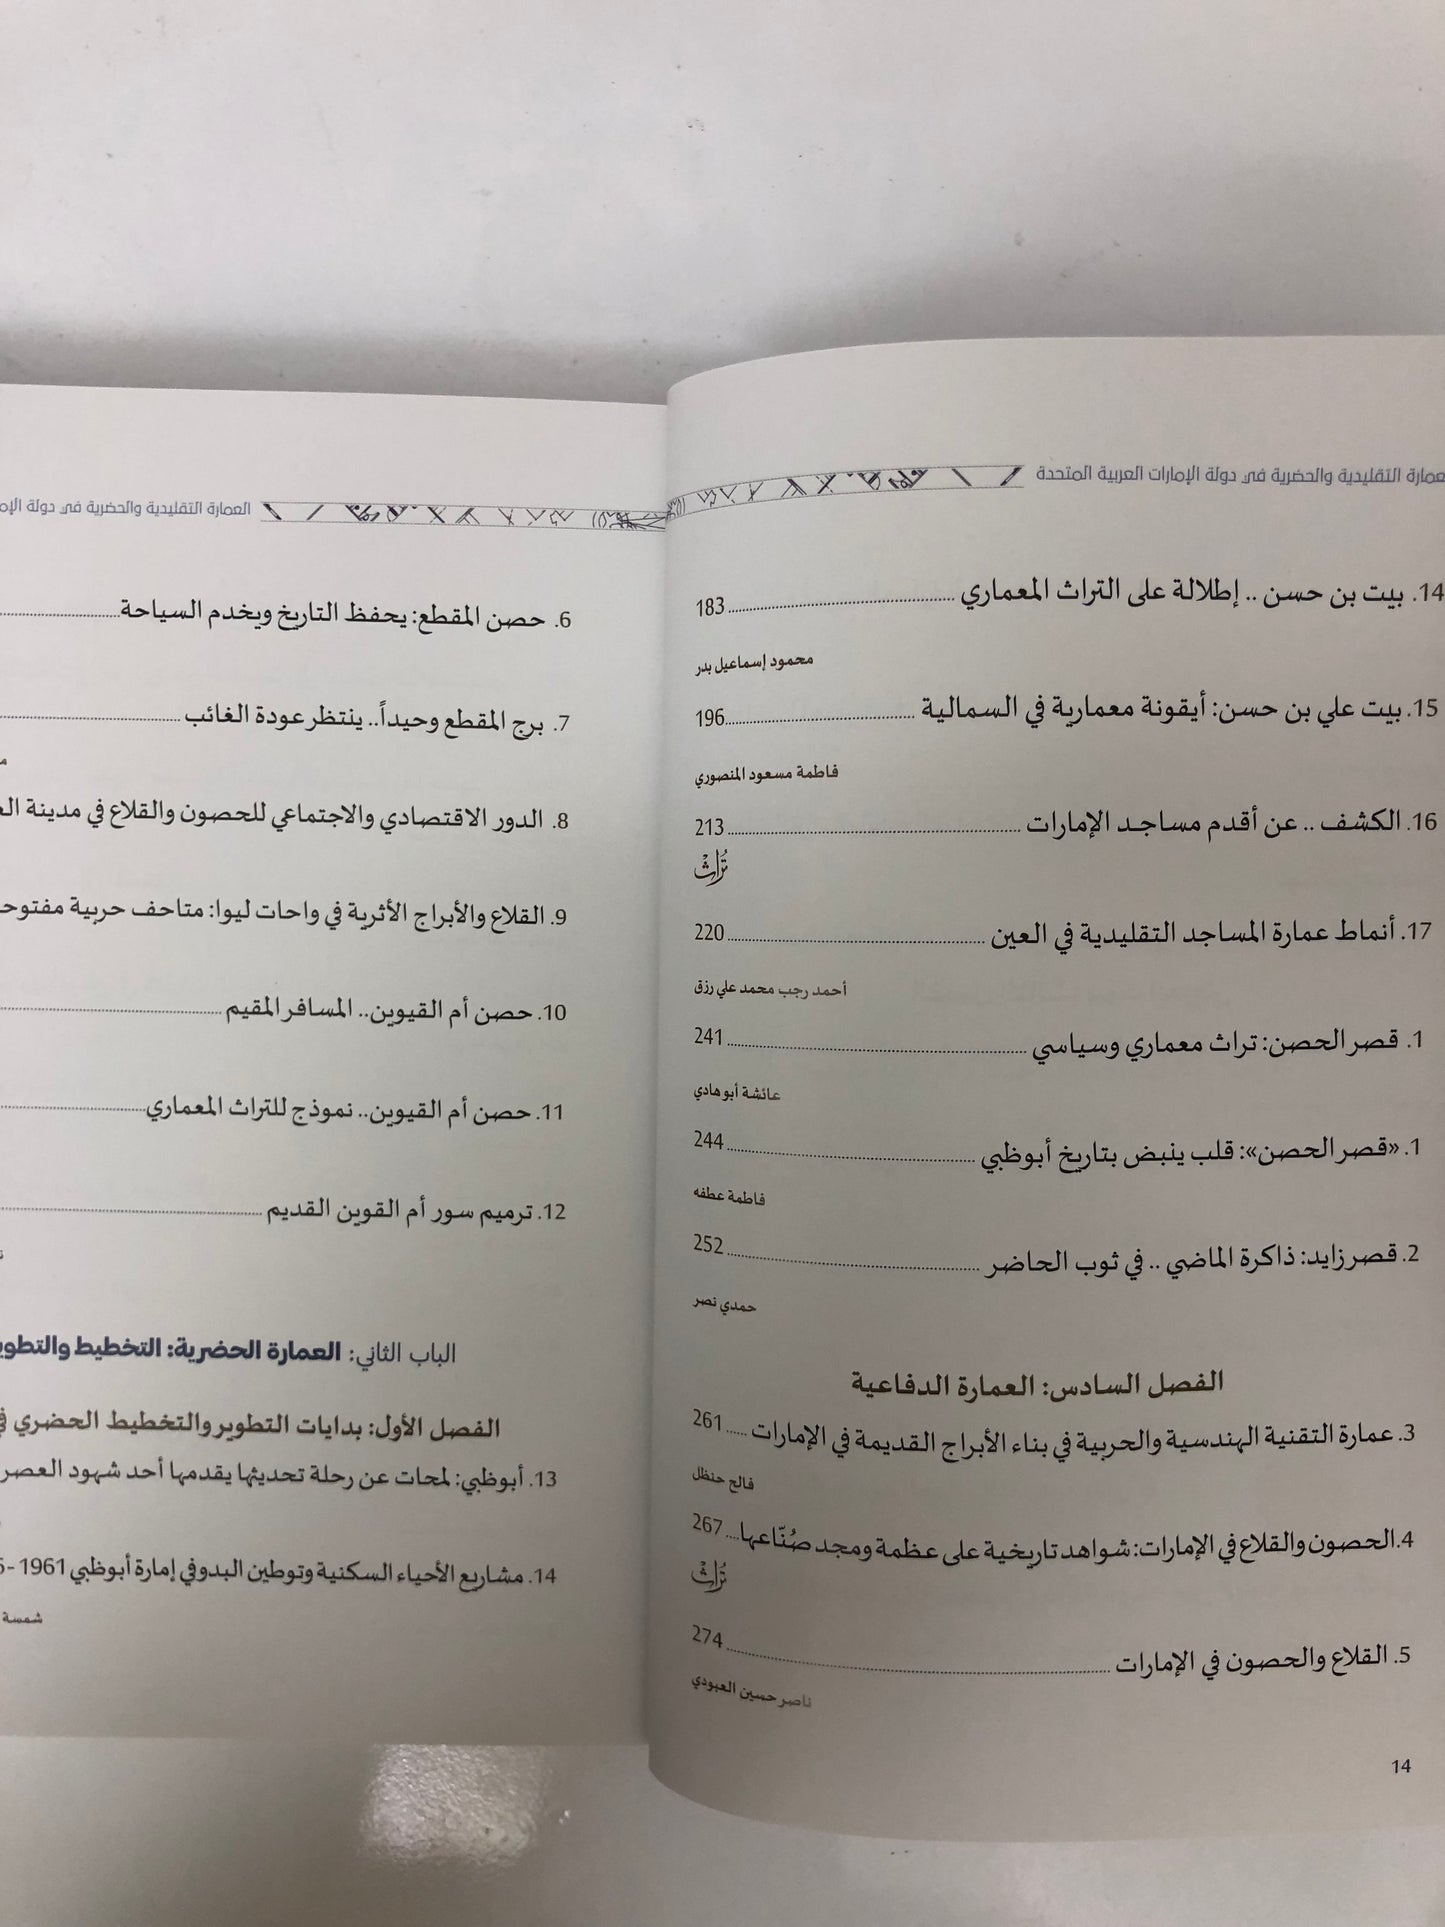 العمارة التقليدية والحضرية في دولة الإمارات العربية المتحدة
14. بيت بن حسن .. إطلالة على التراث المعماري ........ 183
محمود إسماعيل بدر
15. بيت علي بن حسن: أيقونة معمارية في السمالية ........ 196
فاطمة مسعود المنصوري
16. الكشف .. عن أقدم مساجد الإمارات ........ 213
تُراث
17. أنماط عمارة المساجد التقليدية في العين ........ 220
أحمد رجب محمد علي رزق
1. قصر الحصن: تراث معماري وسياسي ........ 241
عائشة أبوهادي
1. «قصر الحصن»: قلب ينبض بتاريخ أبوظبي ........ 244
فاطمة عطفه
2. قصر زايد: ذاكرة الماضي .. في ثوب الحاضر ........ 252
حمدي نصر
الفصل السادس: العمارة الدفاعية
3. عمارة التقنية الهندسية والحربية في بناء الأبراج القديمة في الإمارات ..... 261
فالح حنظل
4. الحصون والقلاع في الإمارات: شواهد تاريخية على عظمة ومجد صُنّاعها .... 267
تُراث
5. القلاع والحصون في الإمارات ........ 274
ناصر حسين العبودي
14
العمارة التقليدية والحضرية في دولة
6. حصن المقطع: يحفظ التاريخ ويخدم السياحة ........
7. برج المقطع وحيداً.. ينتظر عودة الغائب ........
8. الدور الاقتصادي والاجتماعي للحصون والقلاع في مدينة
9. القلاع والأبراج الأثرية في واحات ليوا: متاحف حربية
10. حصن أم القيوين.. المسافر المقيم ........
11. حصن أم القيوين.. نموذج للتراث المعماري ........
12. ترميم سور أم القوين القديم ........
الباب الثاني: العمارة الحضرية: التخطيط
الفصل الأول: بدايات التطوير والتخطيط الحضري
13. أبوظبي: لمحات عن رحلة تحديثها يقدمها أحد شهود العصر
14. مشاريع الأحياء السكنية وتوطين البدو في إمارة أبوظبي 1961 -
شمسة